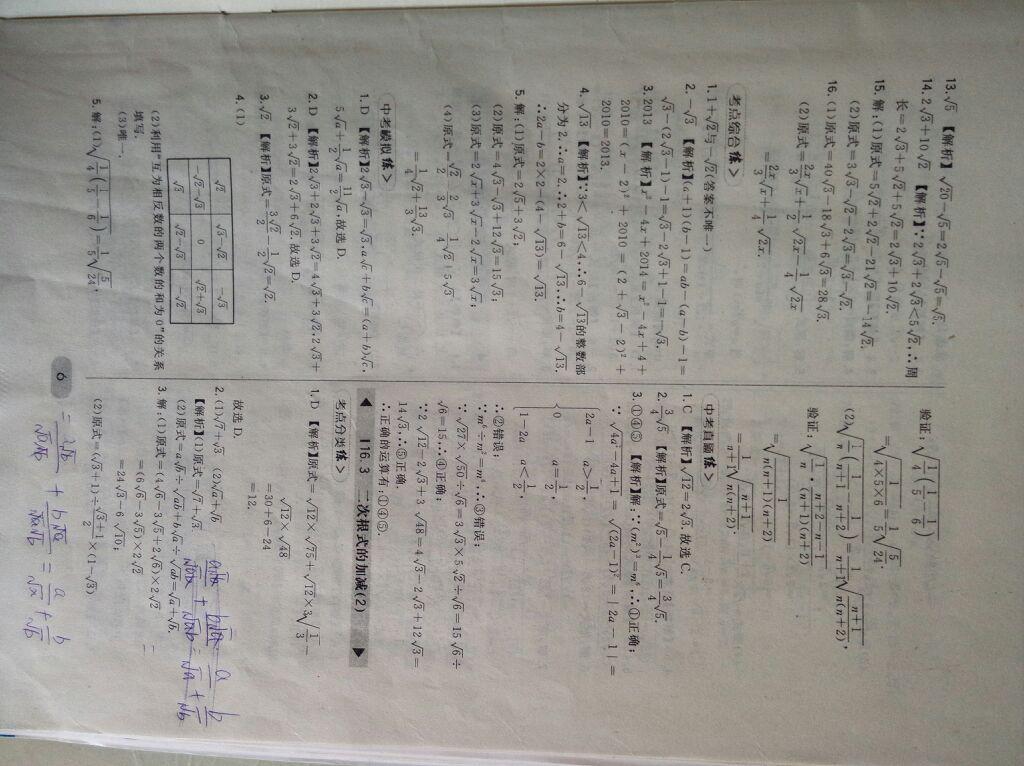 13. √5 【解析】√20-√5=2√5-√5=√5.
14. 2√3+10√2 【解析】∵2√3+2√3<5√2,∴周
长=2√3+5√2+5√2=2√3+10√2.
15. 解:(1)原式=5√2+2√2-21√2=-14√2.
(2)原式=3√3-√2-2√3=√3-√2.
16. (1)原式=40√3-18√3+6√3=28√3.
(2)原式=2x/3√x+1/2√2x-1/4√2x
=2x/3√x+1/4√2x.
考点综合练>
1. 1+√2与-√2(答案不唯一)
2. -√3 【解析】(a+1)(b-1)=ab-(a-b)-1=
√3-(2√3-1)-1=√3-2√3+1-1=-√3.
3. 2013 【解析】x²-4x+2014=x²-4x+4+
2010=(x-2)²+2010=(2+√3-2)²+
2010=2013.
4. √13 【解析】∵3<√13<4,∴6-√13的整数部
分为2,∴a=2,∴2+b=6-√13,∴b=4-√13.
∴2a-b=2×2-(4-√13)=√13.
5. 解:(1)原式=2√5+3√2;
(2)原式=4√3-√3+12√3=15√3;
(3)原式=2√x+3√x-2√x=3√x;
(4)原式=√2/2-2/3√3-1/4√2+5√3
=1/4√2+13/3√3.
中考模拟练>
1. D 【解析】2√3-√3=√3,a√c+b√c=(a+b)√c,
5√a+1/2√a=11/2√a,故选D.
2. D 【解析】2√3+2√3+3√2=4√3+3√2,2√3+
3√2+3√2=2√3+6√2,故选D.
3. √2 【解析】原式=3√2/2-1/2√2=√2.
4. (1)
√2 √3-√2 -√3
-√2-√3 0 √2+√3
√3 √2-√3 -√2
(2)利用“互为相反数的两个数的和为0”的关系
填写.
(3)唯一.
5. 解:(1)√(1/4(1/5-1/6))=1/5√(5/24),
验证:√(1/4(1/5-1/6))
=√(1/(4×5×6))=1/5√(5/24).
(2)√(1/n(1/(n+1)-1/(n+2)))=1/(n+1)√((n+1)/(n(n+2))),
验证:√(1/n·(n+2-n-1)/((n+1)(n+2)))
=√(1/(n(n+1)(n+2)))
=1/(n+1)√((n+1)/(n(n+2))).
中考直通练>
1. C 【解析】√12=2√3,故选C.
2. 3/4√5 【解析】原式=√5-1/4√5=3/4√5.
3. ①④⑤ 【解析】解:∵(m²)³=m⁶,∴①正确;
∵√(4a²-4a+1)=√((2a-1)²)=|2a-1|=
{2a-1 a>1/2,
0 a=1/2,
1-2a a<1/2,
∴②错误;
∵m⁶÷m²=m⁴,∴③错误;
∵√27×√50÷√6=3√3×5√2÷√6=15√6÷
√6=15,∴④正确;
∵2√12-2√3+3√48=4√3-2√3+12√3=
14√3,∴⑤正确.
∴正确的运算有:①④⑤.
◀ 116.3 二次根式的加减(2) ▶
考点分类练>
1. D 【解析】原式=√12×√75+√12×3√(1/3)-
√12×√48
=30+6-24
=12.
故选D.
2. (1)√7+√3 (2)√a+√b
【解析】(1)原式=√7+√3.
(2)原式=a√b÷√ab+b√a÷√ab=√a+√b.
3. 解:(1)原式=(4√6-3√5+2√6)×2√2
=(6√6-3√5)×2√2
=24√3-6√10;
(2)原式=(√3+1)÷(√3+1)/2×(1-√3)
6